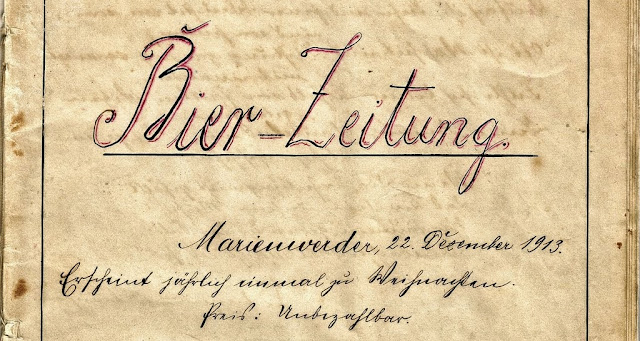 Bier-Zeitung.
Marienwerder, 22. Dezember 1913.
Erscheint jährlich einmal zu Weihnachten.
Preis: Unbezahlbar.